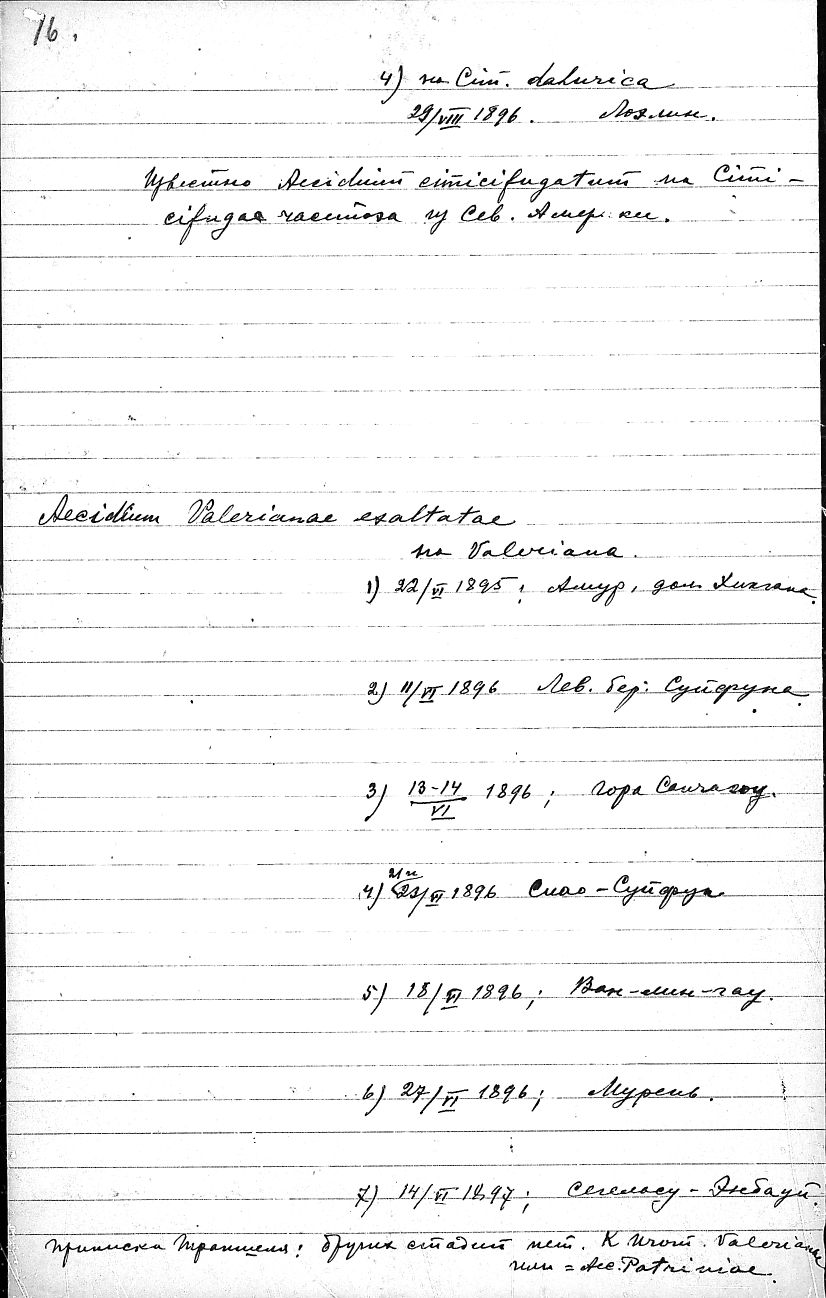 16.
4) на Cim. dahurica
29/VIII 1896. Лоэлин.
Известно Aecidium cimicifugatum на Cimi-
cifugae racemosa из Сев. Америки.
Aecidium Valerianae exaltatae
на Valeriana.
1) 22/VI 1895; Амур, дол. Хингана.
2) 11/VI 1896 Лев. бер. Суйфуна.
3) 13-14/VI 1896; гора Санчагоу.
21 и
4) 23/VI 1896 Сяао-Суйфун
5) 18/VI 1896; Ван-лин-гау.
6) 27/VI 1896; Мурень.
7) 14/VI 1897; Сегеласу - Экбауй.
Приписка Траншеля: других стадий нет. К Urom. Valerianae
или = Aec. Patriniae.